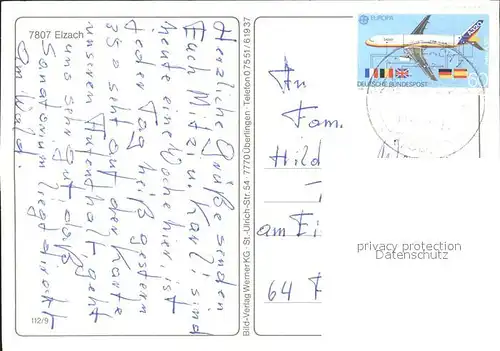 7807 Elzach
Herzliche Grüße senden
Euch Mitzi u. Karl! sind
heute eine Woche hier, ist
jeden Tag heiß gestern
35° seht auf der Karte
unseren Aufenthalt geht
uns sehr gut,
Sanatorium liegt direkt
am Wald.
112/9
Bild-Verlag Werner KG · St.-Ulrich-Str. 54 · 7770 Überlingen · Telefon 07551/61937
EUROPA
A320
DEUTSCHE BUNDESPOST
60
An
Fam.
Hild
am Ei
64 F
privacy protection
Datenschutz